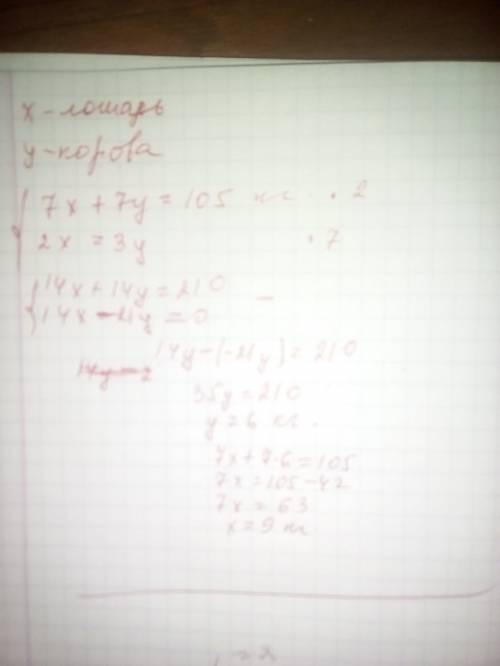 x - лошадь
y - корова
7x + 7y = 105 кг · 2
2x = 3y · 7
14x + 14y = 210 –
14x - 21y = 0
14y - (-21y) = 210
35y = 210
y = 6 кг.
7x + 7·6 = 105
7x = 105 - 42
7x = 63
x = 9 кг